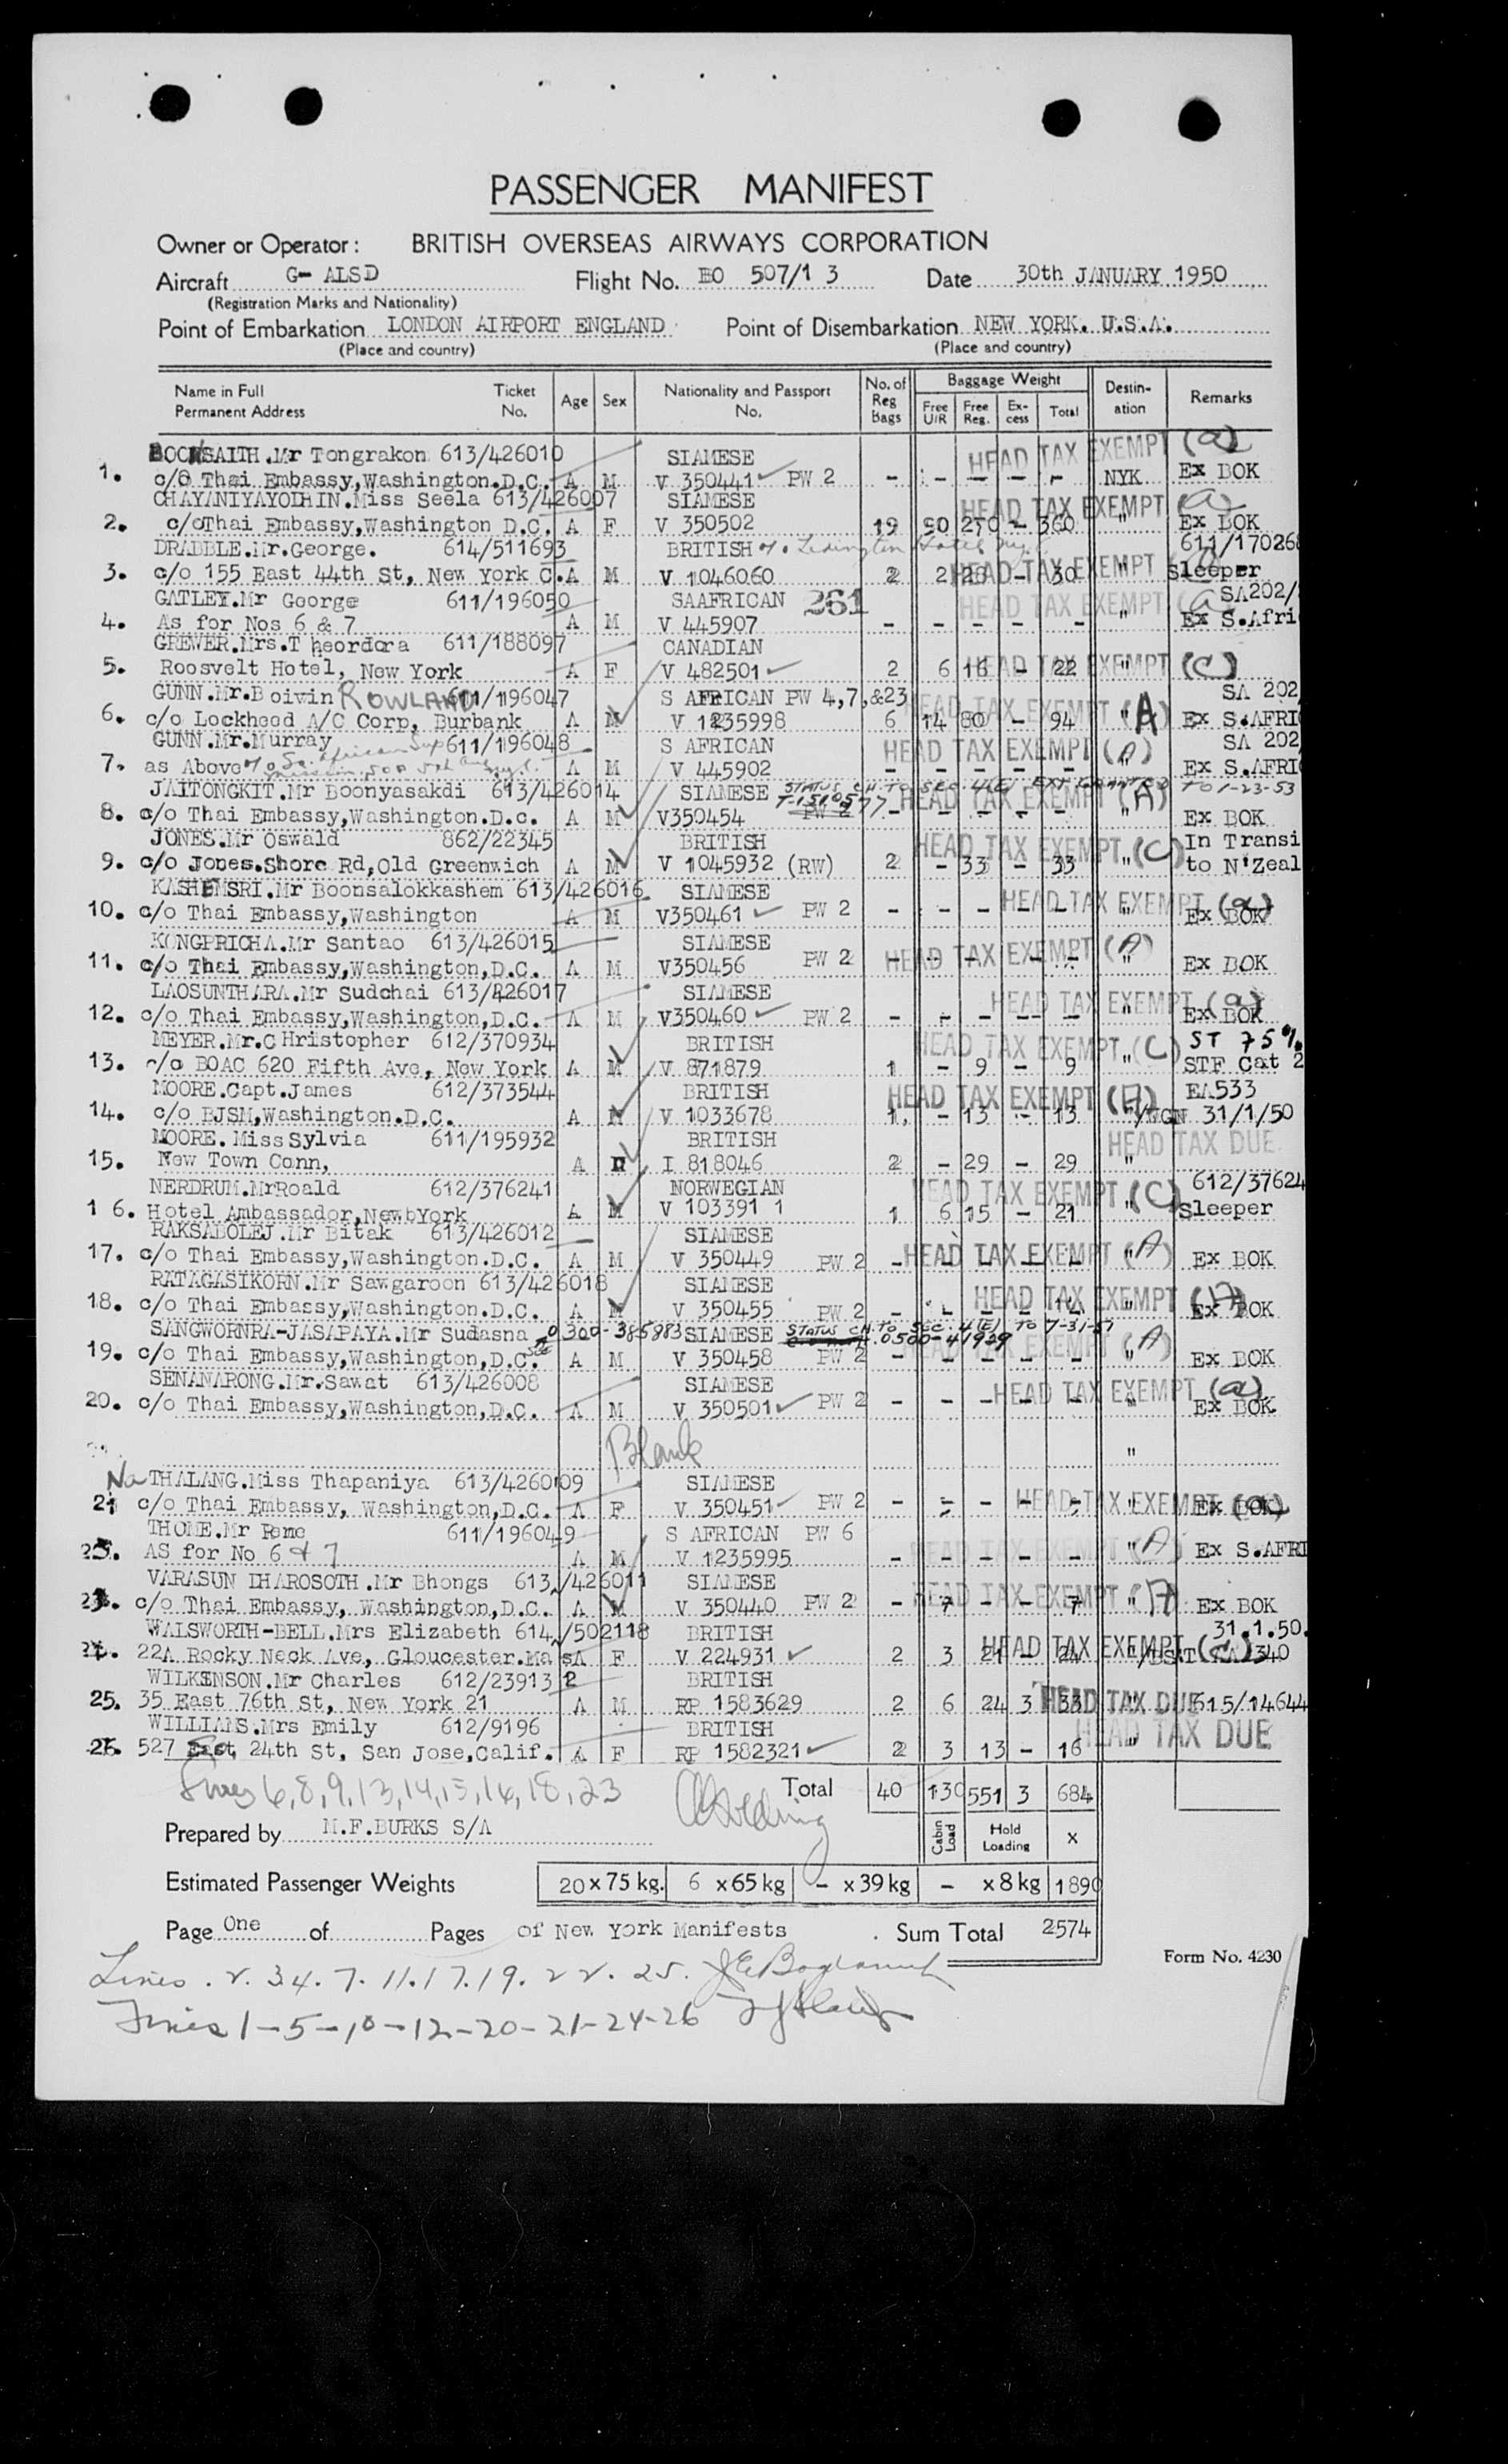 PASSENGER MANIFEST
Owner or Operator: BRITISH OVERSEAS AIRWAYS CORPORATION
Aircraft G- ALSD Flight No. BO 507/1 3 Date 30th JANUARY 1950
(Registration Marks and Nationality)
Point of Embarkation LONDON AIRPORT ENGLAND Point of Disembarkation NEW YORK. U.S.A.
(Place and country) (Place and country)
Name in Full Permanent Address Ticket No. Age Sex Nationality and Passport No. No. of Reg Bags Baggage Weight Free U/R Free Reg. Ex-cess Total Destin-ation Remarks
BOOKSAITH.Mr Tongrakon 613/426010 SIAMESE HEAD TAX EXEMPT (a)
1. c/o Thai Embassy,Washington.D.C. A M V 350441 PW 2 - - - - - NYK Ex BOK
CHAYANIYAYODHIN.Miss Seela 613/426007 SIAMESE HEAD TAX EXEMPT (a)
2. c/oThai Embassy,Washington D.C. A F V 350502 19 90 270 - 360 " Ex BOK
DRABBLE.Mr.George. 614/511693 BRITISH 611/17026
3. c/o 155 East 44th St, New York C. A M V 1046060 2 2 28 - 30 HEAD TAX EXEMPT " Sleeper
GATLEY.Mr George 611/196050 SAAFRICAN 261 HEAD TAX EXEMPT (a) SA202/
4. As for Nos 6 & 7 A M V 445907 - - - - - " Ex S.Afri
GREWER.Mrs.T heordora 611/188097 CANADIAN
5. Roosvelt Hotel, New York A F V 482501 2 6 16 - 22 HEAD TAX EXEMPT " (C)
GUNN.Mr.B oivin ROWLAND 611/196047 S AFRICAN PW 4,7,&23 SA 202
6. c/o Lockheed A/C Corp, Burbank A M V 1235998 6 14 80 - 94 HEAD TAX EXEMPT " (A) Ex S.AFRI
GUNN.Mr.Murray 611/196048 S AFRICAN HEAD TAX EXEMPT (A) SA 202
7. as Above A M V 445902 - - - - - Ex S.AFRI
JAITONGKIT.Mr Boonyasakdi 613/426014 SIAMESE STATUS CH. TO SEC. 4(E) EXT GRANTED TO 1-23-53
8. c/o Thai Embassy,Washington.D.c. A M V350454 T-1510577 PW 2 HEAD TAX EXEMPT (A) - - - - - " Ex BOK
JONES.Mr Oswald 862/22345 BRITISH HEAD TAX EXEMPT (C) In Transi
9. c/o Jones.Shore Rd,Old Greenwich A M V 1045932 (RW) 2 - 33 - 33 " to N'Zeal
KASHEMSRI.Mr Boonsalokkashem 613/426016 SIAMESE HEAD TAX EXEMPT (a)
10. c/o Thai Embassy,Washington A M V350461 PW 2 - - - - - " Ex BOK
KONGPRICHA.Mr Santao 613/426015 SIAMESE HEAD TAX EXEMPT (A)
11. c/o Thai Embassy,Washington,D.C. A M V350456 PW 2 - - - - - " Ex BOK
LAOSUNTHARA.Mr Sudchai 613/426017 SIAMESE HEAD TAX EXEMPT (a)
12. c/o Thai Embassy,Washington,D.C. A M V350460 PW 2 - - - - - " Ex BOK
MEYER.Mr.C Hristopher 612/370934 BRITISH HEAD TAX EXEMPT (C) ST 75%
13. c/o BOAC 620 Fifth Ave, New York A M V 871879 1 - 9 - 9 " STF Cat 2
MOORE.Capt.James 612/373544 BRITISH HEAD TAX EXEMPT (A) EA533
14. c/o BJSM,Washington.D.C. A M V 1033678 1 - 13 - 13 "/WGN 31/1/50
MOORE. Miss Sylvia 611/195932 BRITISH HEAD TAX DUE
15. New Town Conn, A I 818046 2 - 29 - 29 "
NERDRUM.MrRoald 612/376241 NORWEGIAN HEAD TAX EXEMPT (C) 612/37624
1 6. Hotel Ambassador,NewbYork A M V 103391 1 1 6 15 - 21 " Sleeper
RAKSABOLEJ.Mr Bitak 613/426012 SIAMESE HEAD TAX EXEMPT (A)
17. c/o Thai Embassy,Washington.D.C. A M V 350449 PW 2 - - - - - " Ex BOK
RATAGASIKORN.Mr Sawgaroon 613/426018 SIAMESE HEAD TAX EXEMPT (A)
18. c/o Thai Embassy,Washington.D.C. A M V 350455 PW 2 - - - - - " Ex BOK
SANGWORNRA-JASAPAYA.Mr Sudasna 0300-385883 SIAMESE STATUS CH. TO SEC. 4(E) TO 7-31-51 0500-41929
19. c/o Thai Embassy,Washington,D.C. A M V 350458 PW 2 HEAD TAX EXEMPT (A) - - - - - " Ex BOK
SENANARONG.Mr.Sawat 613/426008 SIAMESE HEAD TAX EXEMPT (a)
20. c/o Thai Embassy,Washington,D.C. A M V 350501 PW 2 - - - - - " Ex BOK
Blank "
Na THALANG.Miss Thapaniya 613/426009 SIAMESE
21 c/o Thai Embassy, Washington,D.C. A F V 350451 PW 2 - - - - - HEAD TAX EXEMPT (a) " Ex BOK
THOME.Mr Rene 611/196049 S AFRICAN PW 6
AS for No 6 & 7 A M V 1235995 - - - - - HEAD TAX EXEMPT " (A) Ex S.AFRI
VARASUN DHAROSOTH.Mr Bhongs 613/426011 SIAMESE
23. c/o Thai Embassy, Washington,D.C. A M V 350440 PW 2 - 7 - - 7 HEAD TAX EXEMPT " (A) Ex BOK
WALSWORTH-BELL.Mrs Elizabeth 614/502118 BRITISH 31.1.50.
22A Rocky Neck Ave, Gloucester.Mass A F V 224931 2 3 21 - 24 HEAD TAX EXEMPT (C)
WILKINSON.Mr Charles 612/23913 2 BRITISH
25. 35 East 76th St, New York 21 A M RP 1583629 2 6 24 3 33 HEAD TAX DUE " 615/14644
WILLIAMS.Mrs Emily 612/9196 BRITISH HEAD TAX DUE
26. 527 East 24th St, San Jose,Calif. A F RP 1582321 2 3 13 - 16 "
6,8,9,13,14,15,16,18,23 Total 40 130 551 3 684
Prepared by M.F.BURKS S/A Cabin Load Hold Loading X
Estimated Passenger Weights 20 x 75 kg. 6 x 65 kg - x 39 kg - x 8 kg 1890
Page One of Pages of New York Manifests Sum Total 2574
Form No. 4230
Lines . 2. 3 4. 7. 11. 17. 19. 22. 25.
Lines 1-5-10-12-20-21-24-26